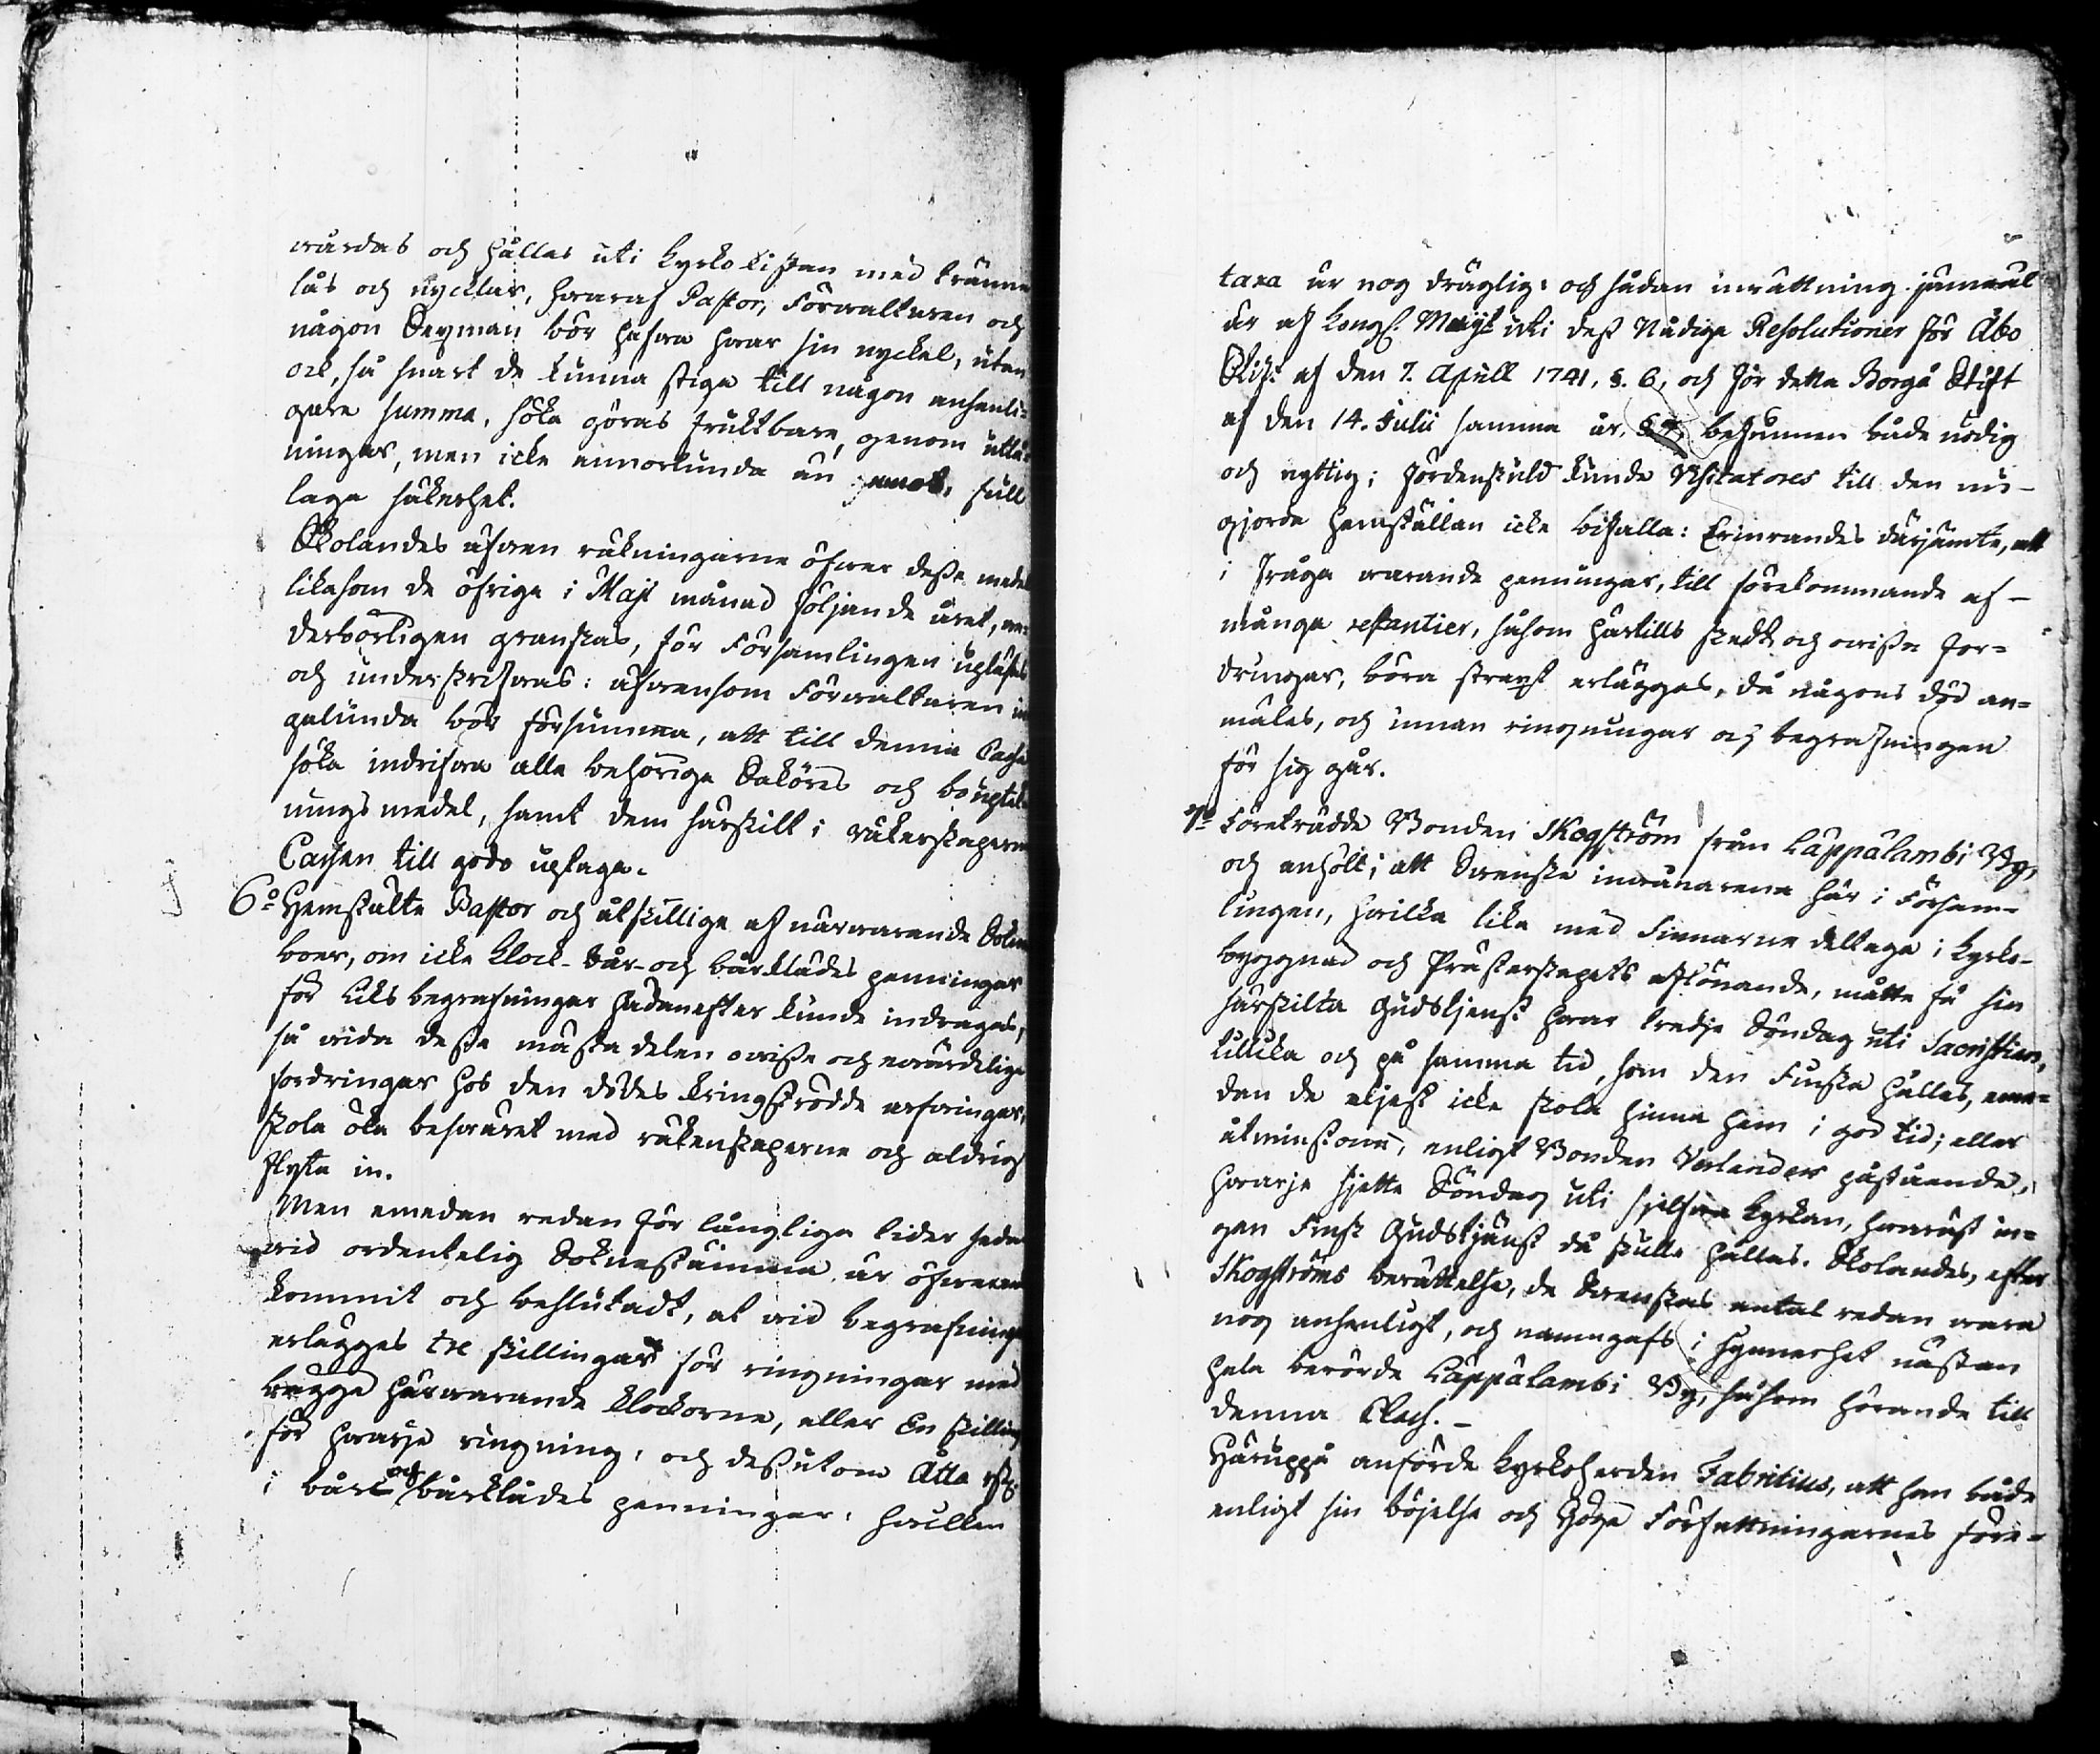 wårdas och hållas uti kyrko kistan med tränne
lås och nycklar, hwaraf Pastor, Förwaltaren och
någon Sexman bör hafwa hwar sin nyckel, utan
ock, så snart de kunna stiga till någon ansenli=
gare summa, söka göras fruktbare, genom utlå=
ningar, men icke annorlunda än emot full
laga säkerhet.
Skolandes äfwen räkningarne öfwer desse medel
likasom de öfrige i Maji månad följande året, we=
derbörligen granskas, för Församlingen upläsas
och underskrifwas: äfwensom Förwaltaren in
galunda bör försumma, att till denna Cassa
söka indrifwa alla behörige Saköres och bouptek
nings medel, samt dem särskilt i räkenskaperne
Cassan till godo uptaga.
6o Hemstälte Pastor och åtskillige af närwarande Sokne
boer, om icke Klock- bår- och bårklädes penningar
för Liks begrafningar hädanefter kunde indragas,
så wida desse mästa delen owisse och owärdelige
fordringar hos den dödes kringströdde arfwingar,
skola öka beswäret med räkenskaperne och aldrig
flyta in.
Men emedan redan för långliga tider sedan
wid ordentelig Soknestämma är öfwerens
kommit och beslutadt, at wid begrafningar
erlägges tre skillingar för ringningar med
bägge härwarande klockorne, eller En skilling
för hwarje ringning, och dessutom Åtta rst.
i bår och bårklädes penningar, hwilken
taxa är nog dräglig: och sådan inrättning jämwäl
är af Kongl. Maijt uti dess Nådige Resolutioner för Åbo
Stift af den 7. April 1741, §. 6, och för detta Borgå Stift
af den 14. Julii samma år, § 7, befunnen både nödig
och nyttig; fördenskuld kunde Visitatores till den nu-
gjorde hemställan icke bifalla: Erinrandes därjämte, att
i fråga warande penningar, till förekommande af
många restantier, såsom härtills skedt och owisse for=
dringar, böra strengt erläggas, då någons död an=
mäles, och innan ringningar och begrafningen
för sig går.
7o Företrädde Bonden Skogström från Lappalambi By,
och anhölt; att Swenske inwånarena här i Försam=
lingen, hwilka lika med Finnarne deltaga i kyrko-
byggnad och Prästerskapets aflönande, måtte få sin
särskilta Gudstjenst hwar tredje Söndag uti Sacristian,
lillika och på samma tid, som den Finska hålles, eme=
dan de eljest icke skola hinna hem i god tid; eller
åtminstone, enligt Bonden Verlanders påstående,
hwarje sjette Söndag uti sjelfwa Kyrkan, hwaräst in=
gen Finsk Gudstjänst då skulle hållas. Skolandes, efter
Skogströms berättelse, de Swenskas antal redan wara
nog ansenligt, och namngafs i synnerhet nästan
hela berörde Lappalambi By, såsom hörande till
denna Class. -
Häruppå anförde Kyrkoherden Fabritius, att han både
enligt sin böjelse och Höga Författningarnes före=